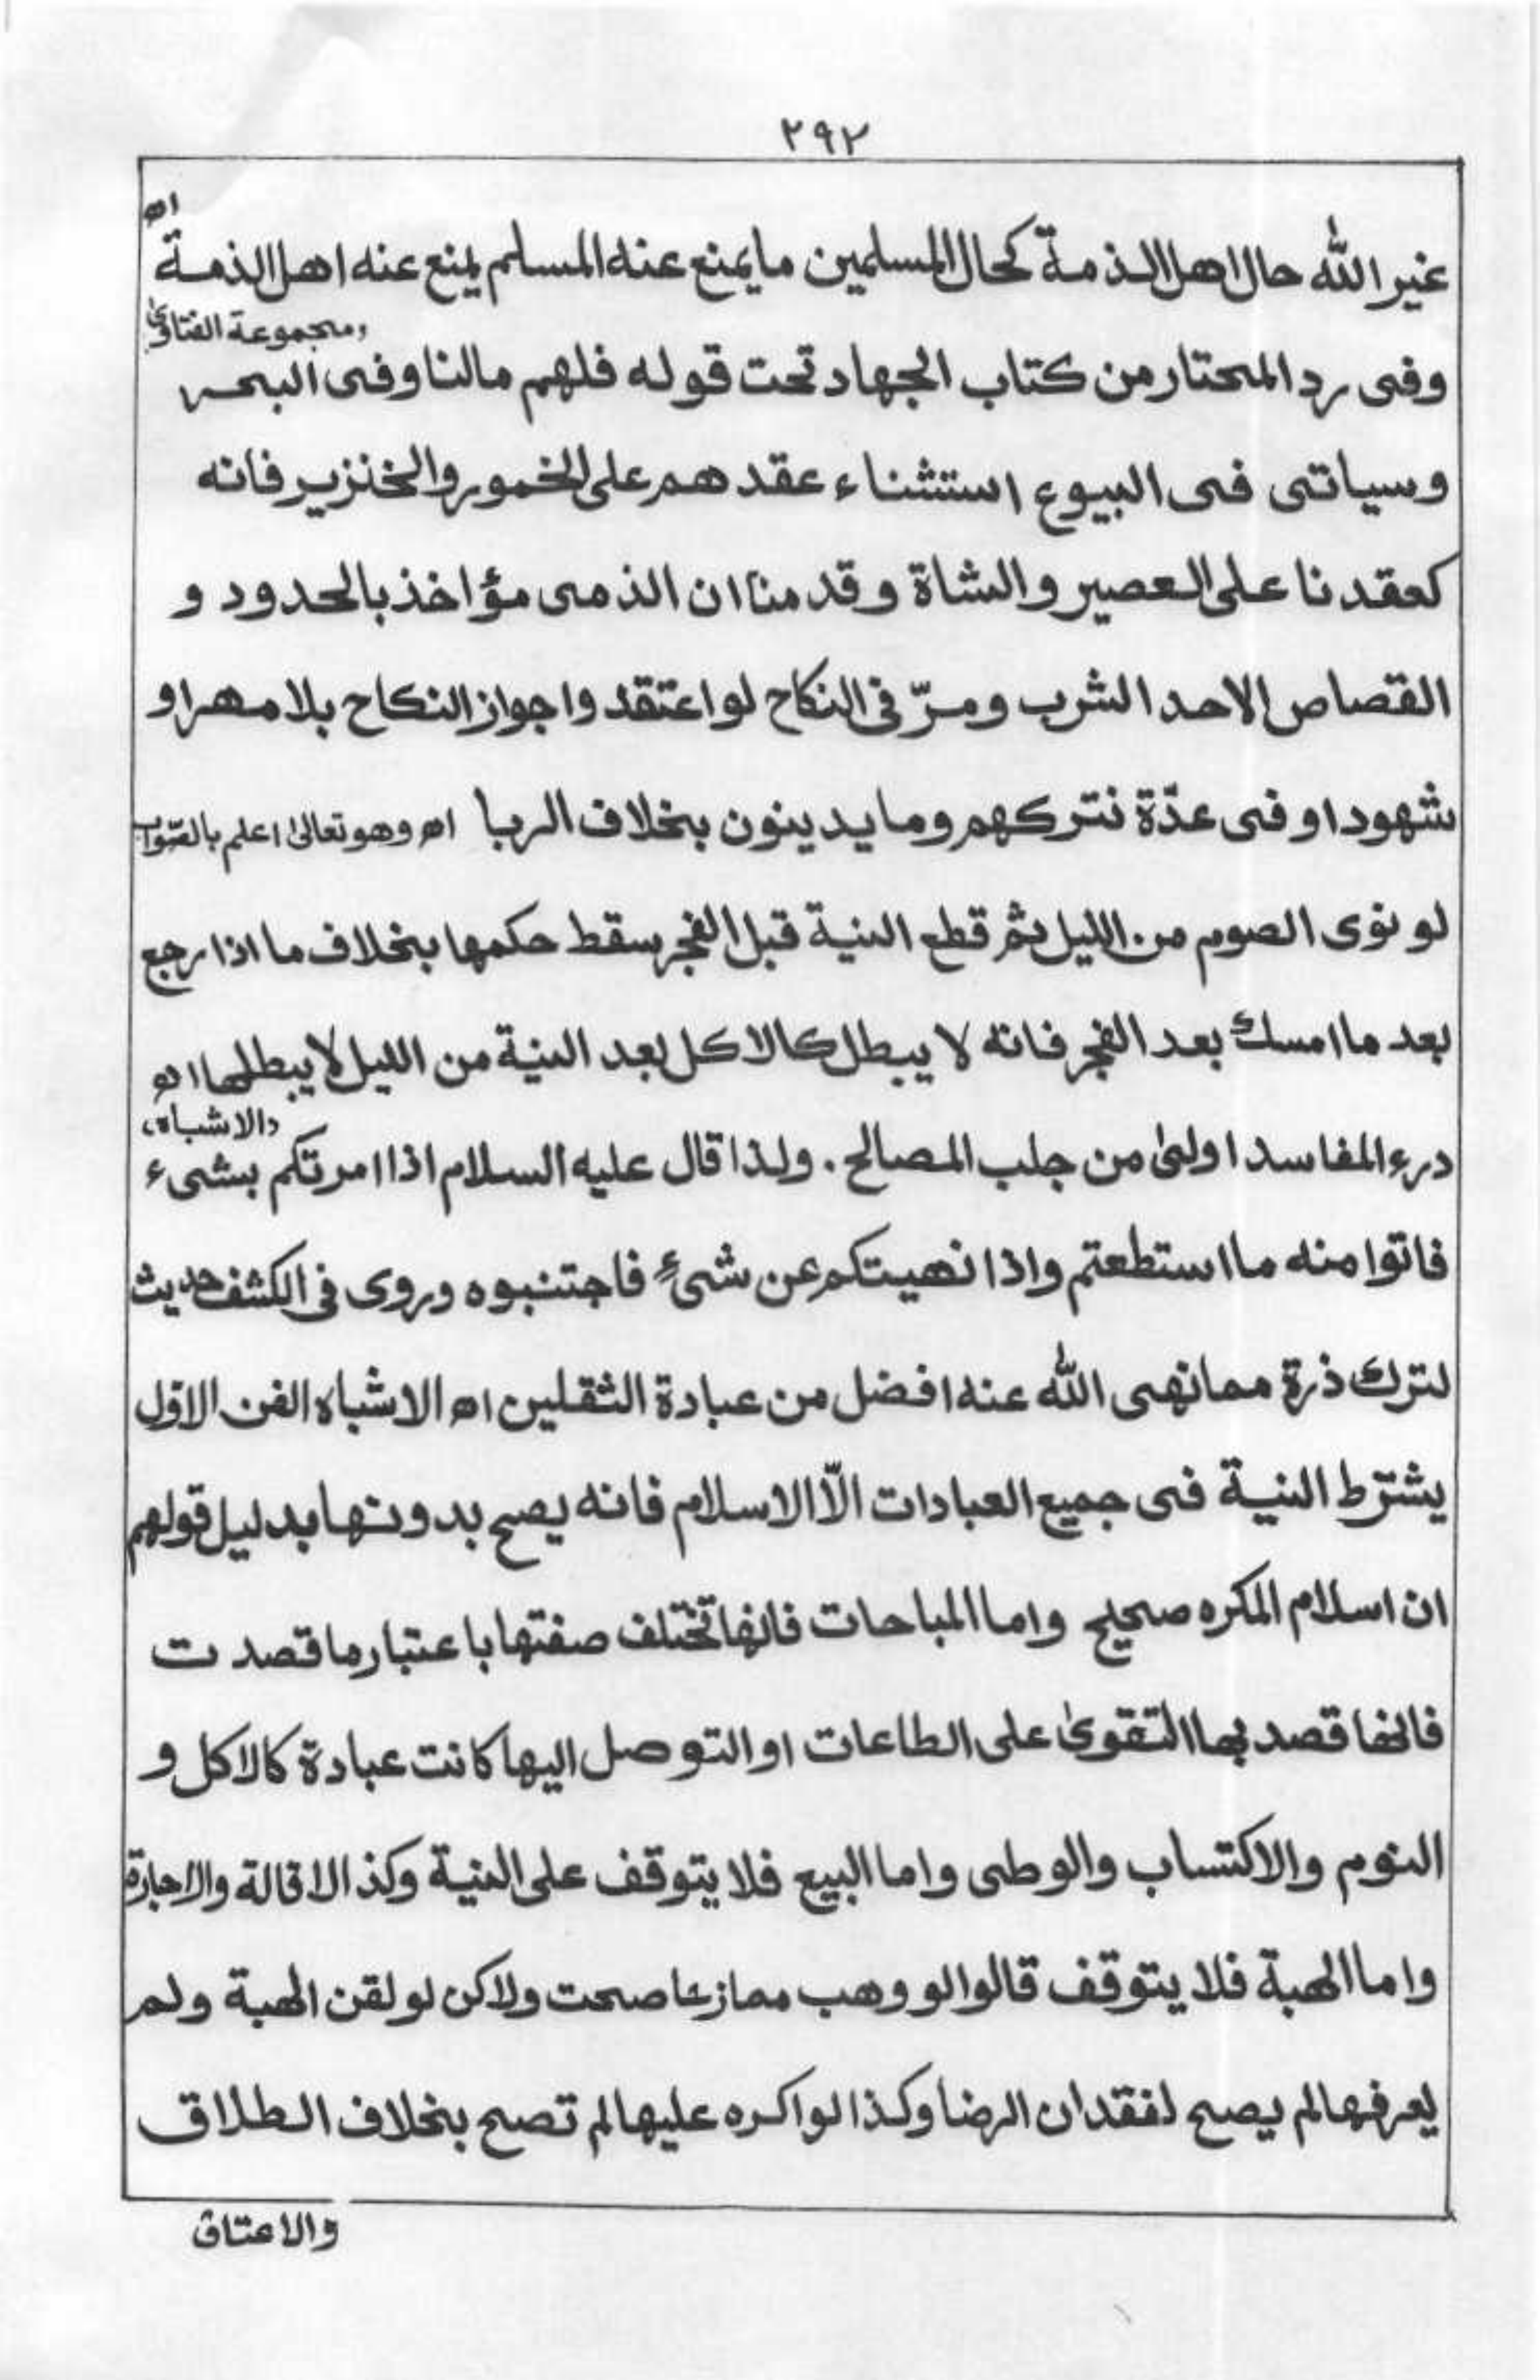 ٢٩٢
غير الله حال اهل الذمة كحال المسلمين ما يمنع عنه المسلم يمنع عنه اهل الذمة اھ
(مجموعة الفتاوىٰ)
وفى رد المحتار من كتاب الجهاد تحت قوله فلهم مالنا وفى البحر
وسياتى فى البيوع استثناء عقدهم على الخمور والخنزير فانه
كعقدنا على العصير والشاة وقدمنا ان الذمى مؤاخذ بالحدود و
القصاص الاحد الشرب ومرّ فى النكاح لو اعتقدوا جواز النكاح بلا مهر او
شهود او فى عدّة نتركهم وما يدينون بخلاف الربا اھ وهو تعالىٰ اعلم بالصّواب
لو نوى الصوم من الليل ثم قطع النية قبل الفجر سقط حكمها بخلاف ما اذا رجع
بعد ما امسك بعد الفجر فانه لا يبطل كالاكل بعد النية من الليل لا يبطلها اھ
(الاشباه)
درء المفاسد اولىٰ من جلب المصالح . ولذا قال عليه السلام اذا امرتكم بشىء
فاتوا منه ما استطعتم واذا نهيتكم عن شىءٍ فاجتنبوه وروى فى الكشف حديث
لترك ذرة مما نهى الله عنه افضل من عبادة الثقلين اھ الاشباه الفن الاوّل
يشترط النية فى جميع العبادات الّا الاسلام فانه يصح بدونها بدليل قولهم
ان اسلام المكره صحيح واما المباحات فانها تختلف صفتها باعتبار ما قصدت
فانها قصد بها التقوىٰ على الطاعات او التوصل اليها كانت عبادة كالاكل و
النوم والاكتساب والوطى واما البيع فلا يتوقف على النية وكذا الاقالة والاجارة
واما الهبة فلا يتوقف قالوا لو وهب ممازعا صحت ولاكن لو لقن الهبة ولم
يعرفها لم يصح لفقدان الرضا وكذا لو اكره عليها لم تصح بخلاف الطلاق
والاعتاق